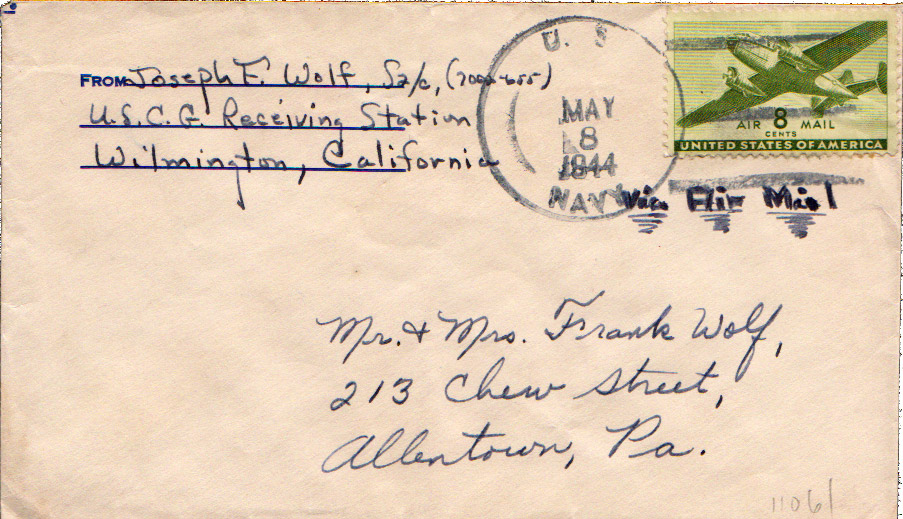 FROM Joseph F. Wolf, S2/c, (7002-655)
U.S.C.G. Receiving Station
Wilmington, California
U. S.
MAY
8
1944
NAVY
AIR 8 MAIL
CENTS
UNITED STATES OF AMERICA
Via Air Mail
Mr. & Mrs. Frank Wolf,
213 Chew Street,
Allentown, Pa.
11061